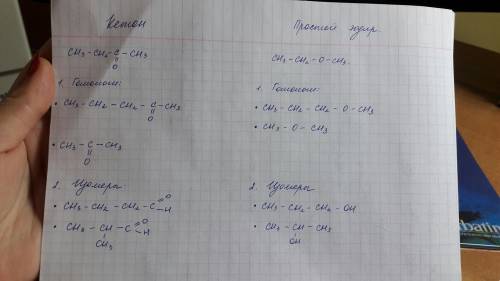 Кетон
CH₃-CH₂-C-CH₃
||
O
1. Гомологи:
• CH₃-CH₂-CH₂-C-CH₃
||
O
• CH₃-C-CH₃
||
O
2. Изомеры:
• CH₃-CH₂-CH₂-C=O
-H
• CH₃-CH-C=O
-H
|
CH₃
Простой эфир
CH₃-CH₂-O-CH₃
1. Гомологи:
• CH₃-CH₂-CH₂-O-CH₃
• CH₃-O-CH₃
2. Изомеры
• CH₃-CH₂-CH₂-OH
• CH₃-CH-CH₃
|
OH
erbatim